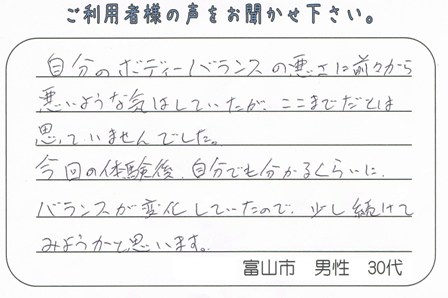 ご利用者様の声をお聞かせ下さい。
自分のボディーバランスの悪さに前々から
悪いような気はしていたが、ここまでだとは
思っていませんでした。
今回の体験後、自分でも分かるくらいに、
バランスが変化していたので、少し続けて
みようかと思います。
富山市 男性 30代